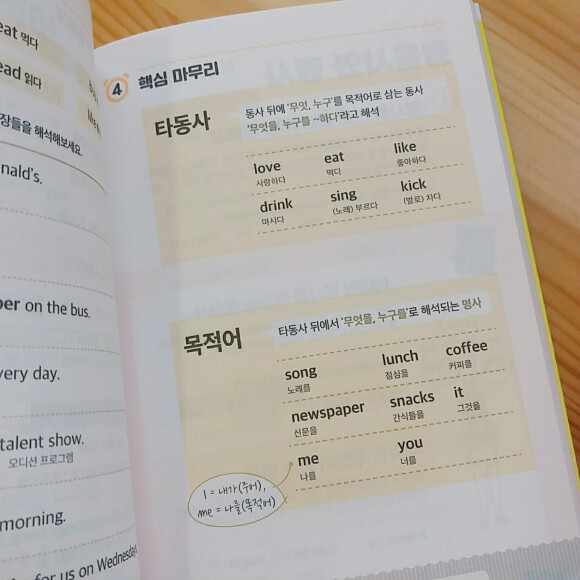 eat 먹다
ead 읽다
장들을 해석해보세요.
nald's.
per on the bus.
very day.
talent show.
오디션 프로그램
morning.
for us on Wednesday
4 핵심 마무리
타동사
동사 뒤에 '무엇, 누구'를 목적어로 삼는 동사
'무엇을, 누구를 ~하다'라고 해석
love eat like
사랑하다 먹다 좋아하다
drink sing kick
마시다 (노래) 부르다 (발로) 차다
목적어
타동사 뒤에서 '무엇을, 누구를'로 해석되는 명사
song lunch coffee
노래를 점심을 커피를
newspaper snacks it
신문을 간식들을 그것을
me you
나를 너를
I = 내가(주어),
me = 나를(목적어)